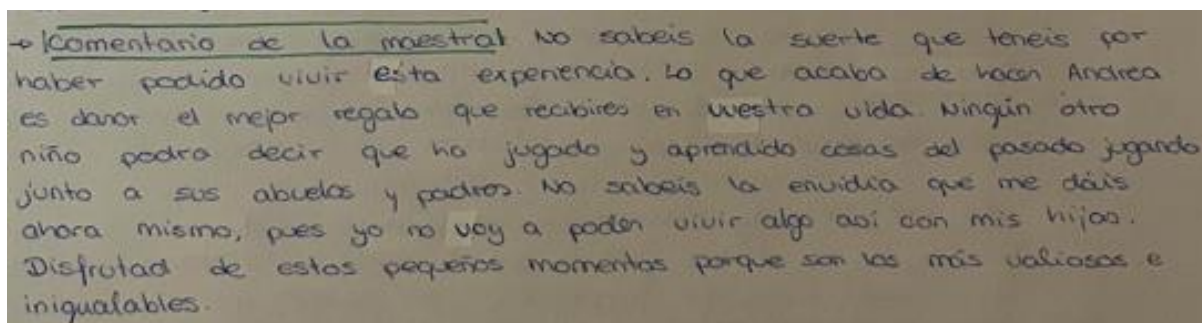 → |Comentario de la maestra| No sabeis la suerte que teneis por
haber podido vivir esta experiencia. Lo que acaba de hacer Andrea
es daros el mejor regalo que recibires en vuestra vida. Ningún otro
niño podra decir que ha jugado y aprendido cosas del pasado jugando
junto a sus abuelos y padres. No sabeis la envidia que me dáis
ahora mismo, pues yo no voy a poder vivir algo asi con mis hijos.
Disfrutad de estos pequeños momentos porque son los más valiosos e
inigualables.